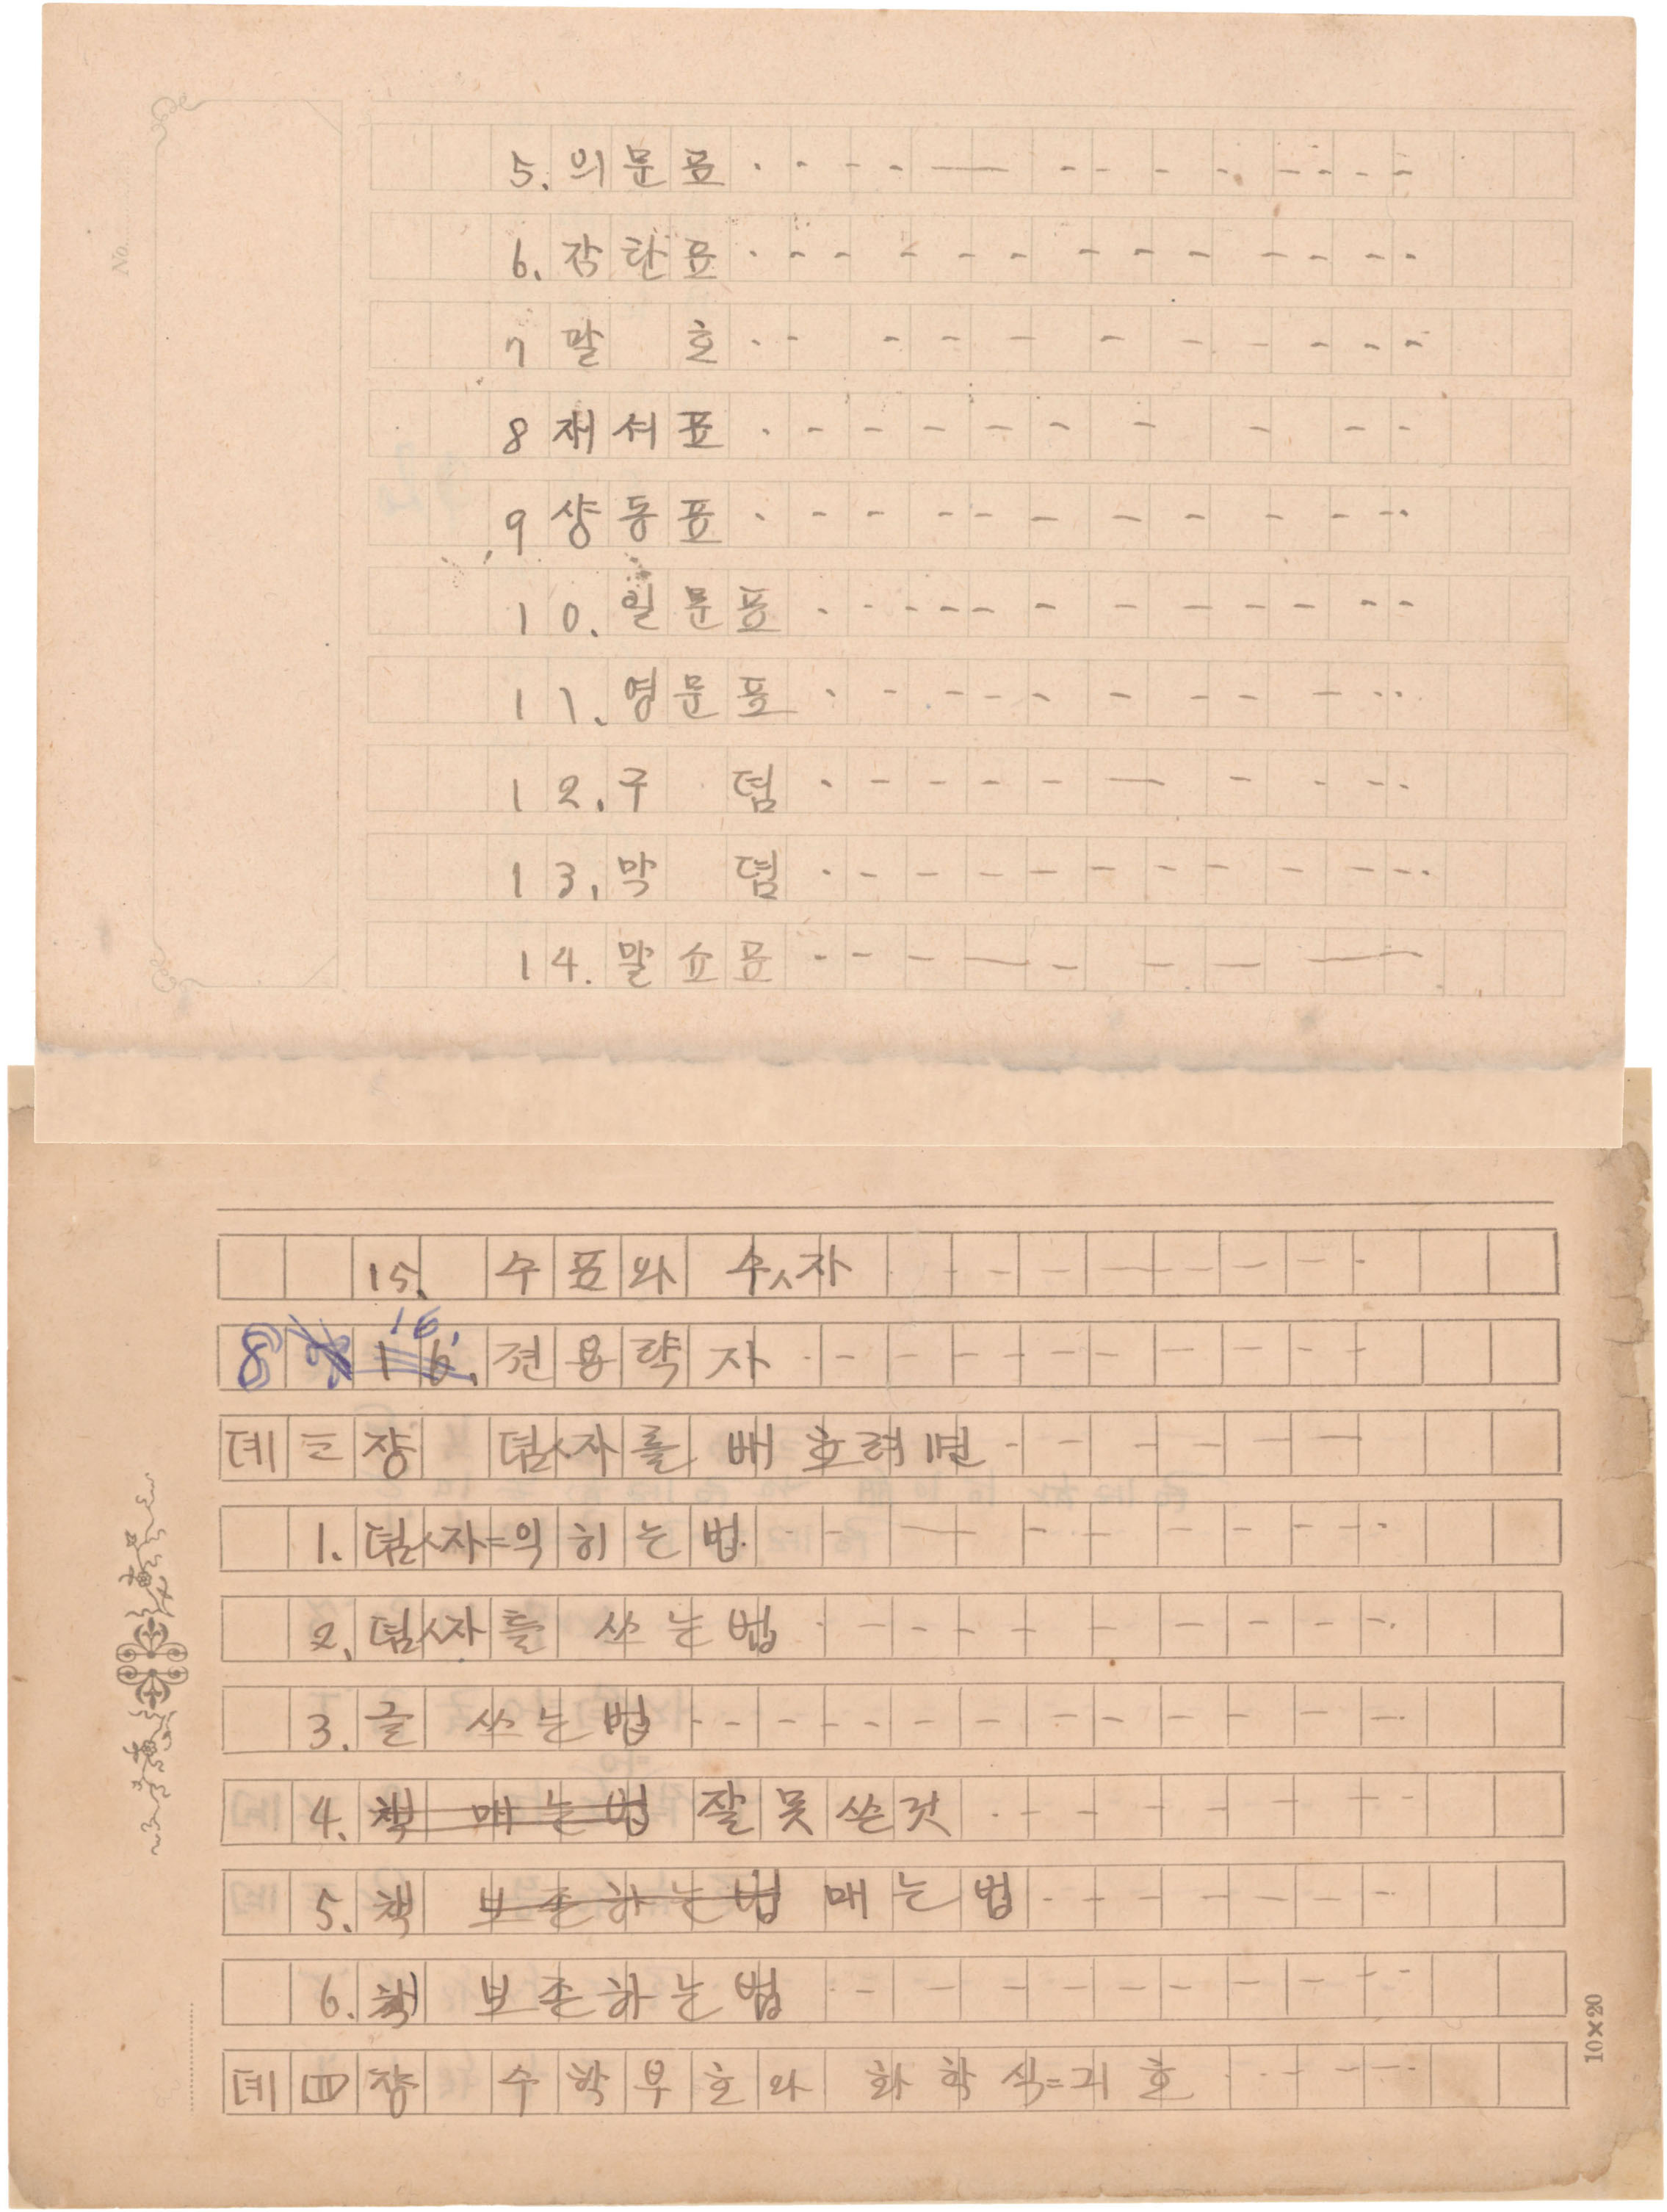 5. 의문표
6. 감탄표
7 말 호
8 재셔표
9 샹동표
10. 일문표
11. 영문표
12. 구 뎜
13. 막 뎜
14. 말쇼표
15. 수표와 수ㅅ자
8 16. 젼용략자
뎨三쟝 뎜ㅅ자를 배호려면
1. 뎜ㅅ자=익히는법
2. 뎜ㅅ자틀 쓰는법
3. 글 쓰는법
4. 책 매는법 잘못쓴것
5. 책 보존하는법 매는법
6. 책 보존하는법
뎨四쟝 수학부호와 화학식=긔호
10×20